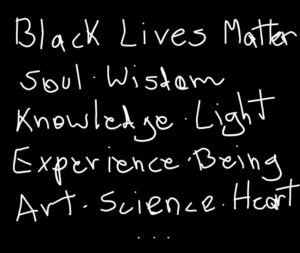 Black Lives Matter
Soul · Wisdom
Knowledge · Light
Experience · Being
Art · Science · Heart
. . .